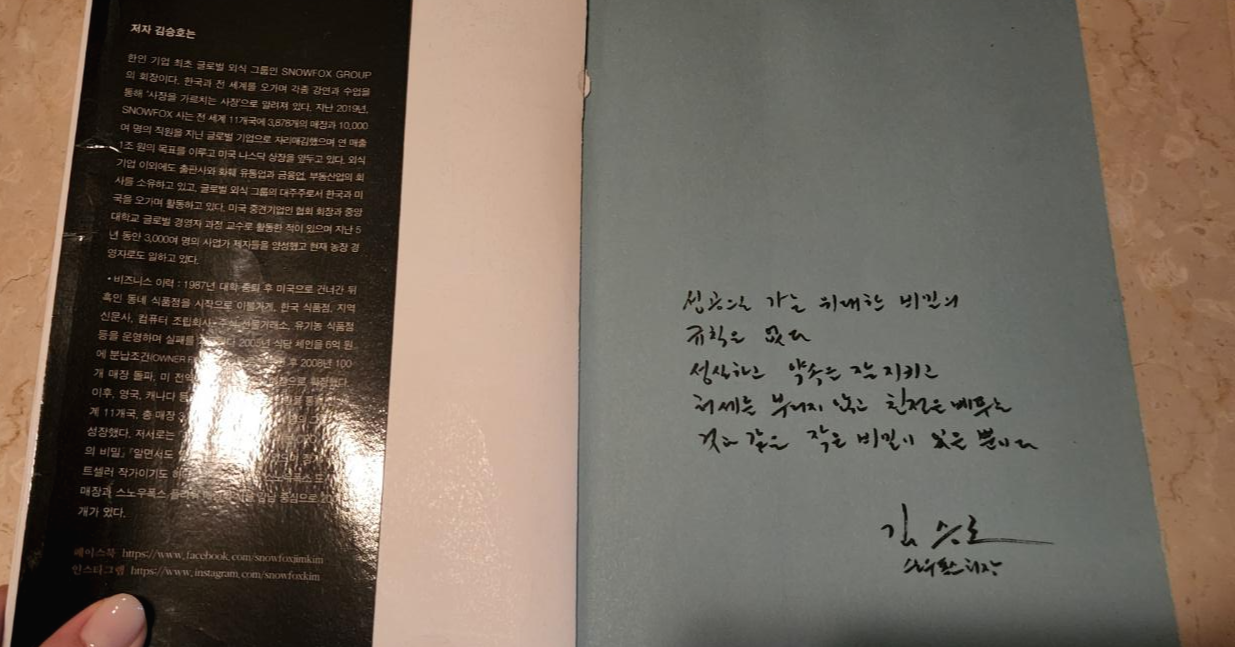 저자 김승호는
한인 기업 최초 글로벌 외식 그룹인 SNOWFOX GROUP
의 회장이다. 한국과 전 세계를 오가며 각종 강연과 수업을
통해 '사장을 가르치는 사장'으로 알려져 있다. 지난 2019년,
SNOWFOX 사는 전 세계 11개국에 3,878개의 매장과 10,000
여 명의 직원을 지닌 글로벌 기업으로 자리매김했으며 연 매출
1조 원의 목표를 이루고 미국 나스닥 상장을 앞두고 있다. 외식
기업 이외에도 출판사와 화훼 유통업과 금융업, 부동산업의 회
사를 소유하고 있고, 글로벌 외식 그룹의 대주주로서 한국과 미
국을 오가며 활동하고 있다. 미국 중견기업인 협회 회장과 중앙
대학교 글로벌 경영자 과정 교수로 활동한 적이 있으며 지난 5
년 동안 3,000여 명의 사업가 제자들을 양성했고 현재 농장 경
영자로도 일하고 있다.
• 비즈니스 이력 : 1987년 대학 중퇴 후 미국으로 건너간 뒤
흑인 동네 식품점을 시작으로 이불가게, 한국 식품점, 지역
신문사, 컴퓨터 조립회사, 주식 선물거래소, 유기농 식품점
등을 운영하며 실패를 2005년 식당 체인을 6억 원
에 분납조건(OWNER 후 2008년 100
개 매장 돌파, 미 전역
이후, 영국, 캐나다 등
계 11개국, 총 매장
성장했다. 저서로는
의 비밀』 『알면서도
트셀러 작가이기도
매장과 스노우폭스 중심으로
개가 있다.
페이스북 https://www.facebook.com/snowfoxjimkim
인스타그램 https://www.instagram.com/snowfoxkim
성공으로 가는 위대한 비밀이나
규칙은 없다
성실하고 약속을 잘 지키고
허세를 부리지 않고 친절을 베푸는
것과 같은 작은 비밀이 있을 뿐이다
김승호
스노우폭스 회장